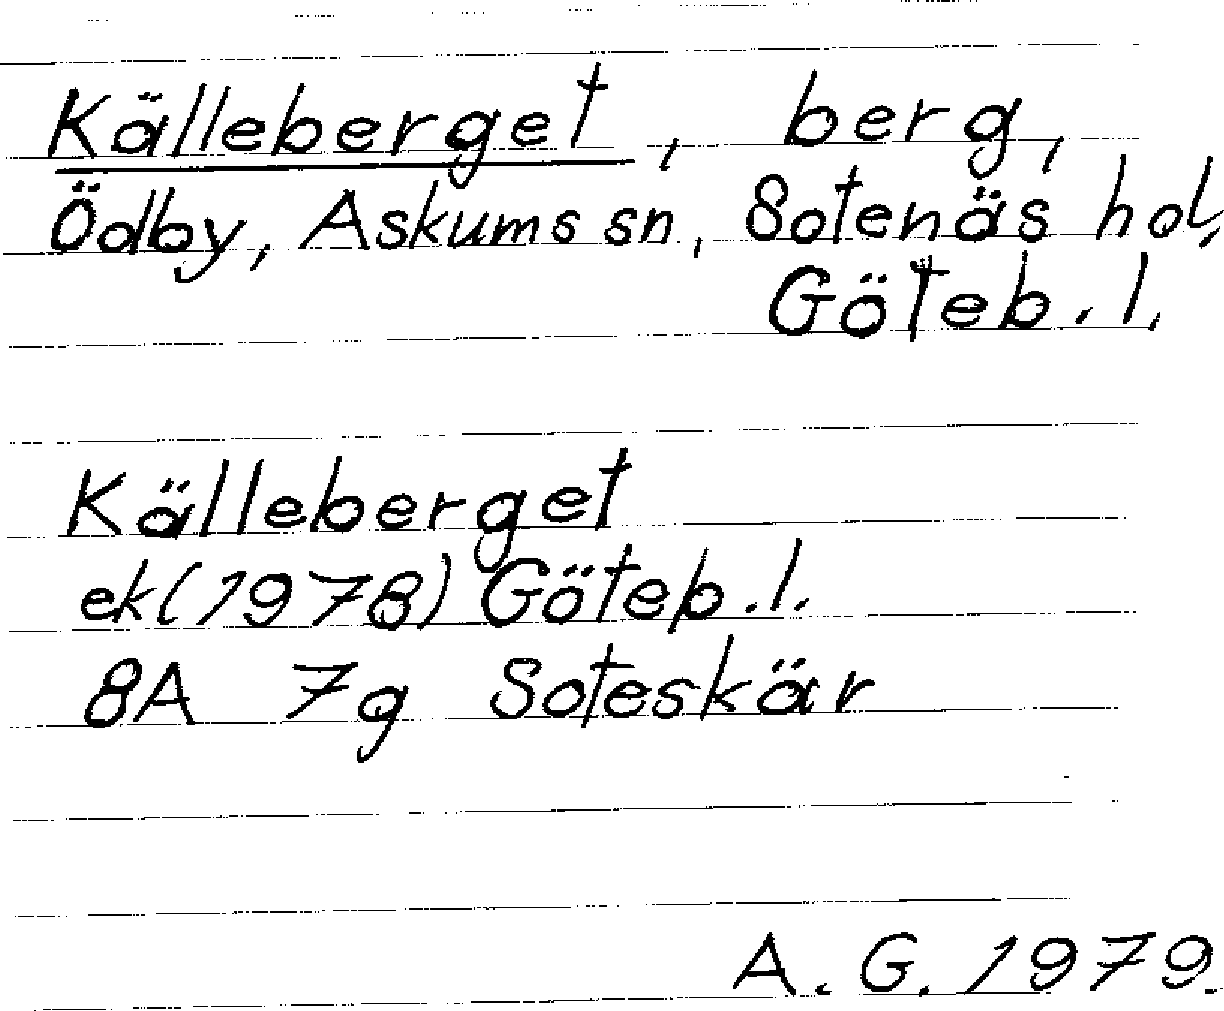 Källeberget, berg,
Ödby, Askums sn, Sotenäs hd,
Göteb. l.
Källeberget
ek(1978) Göteb. l.
8A 7g Soteskär
A. G. 1979.